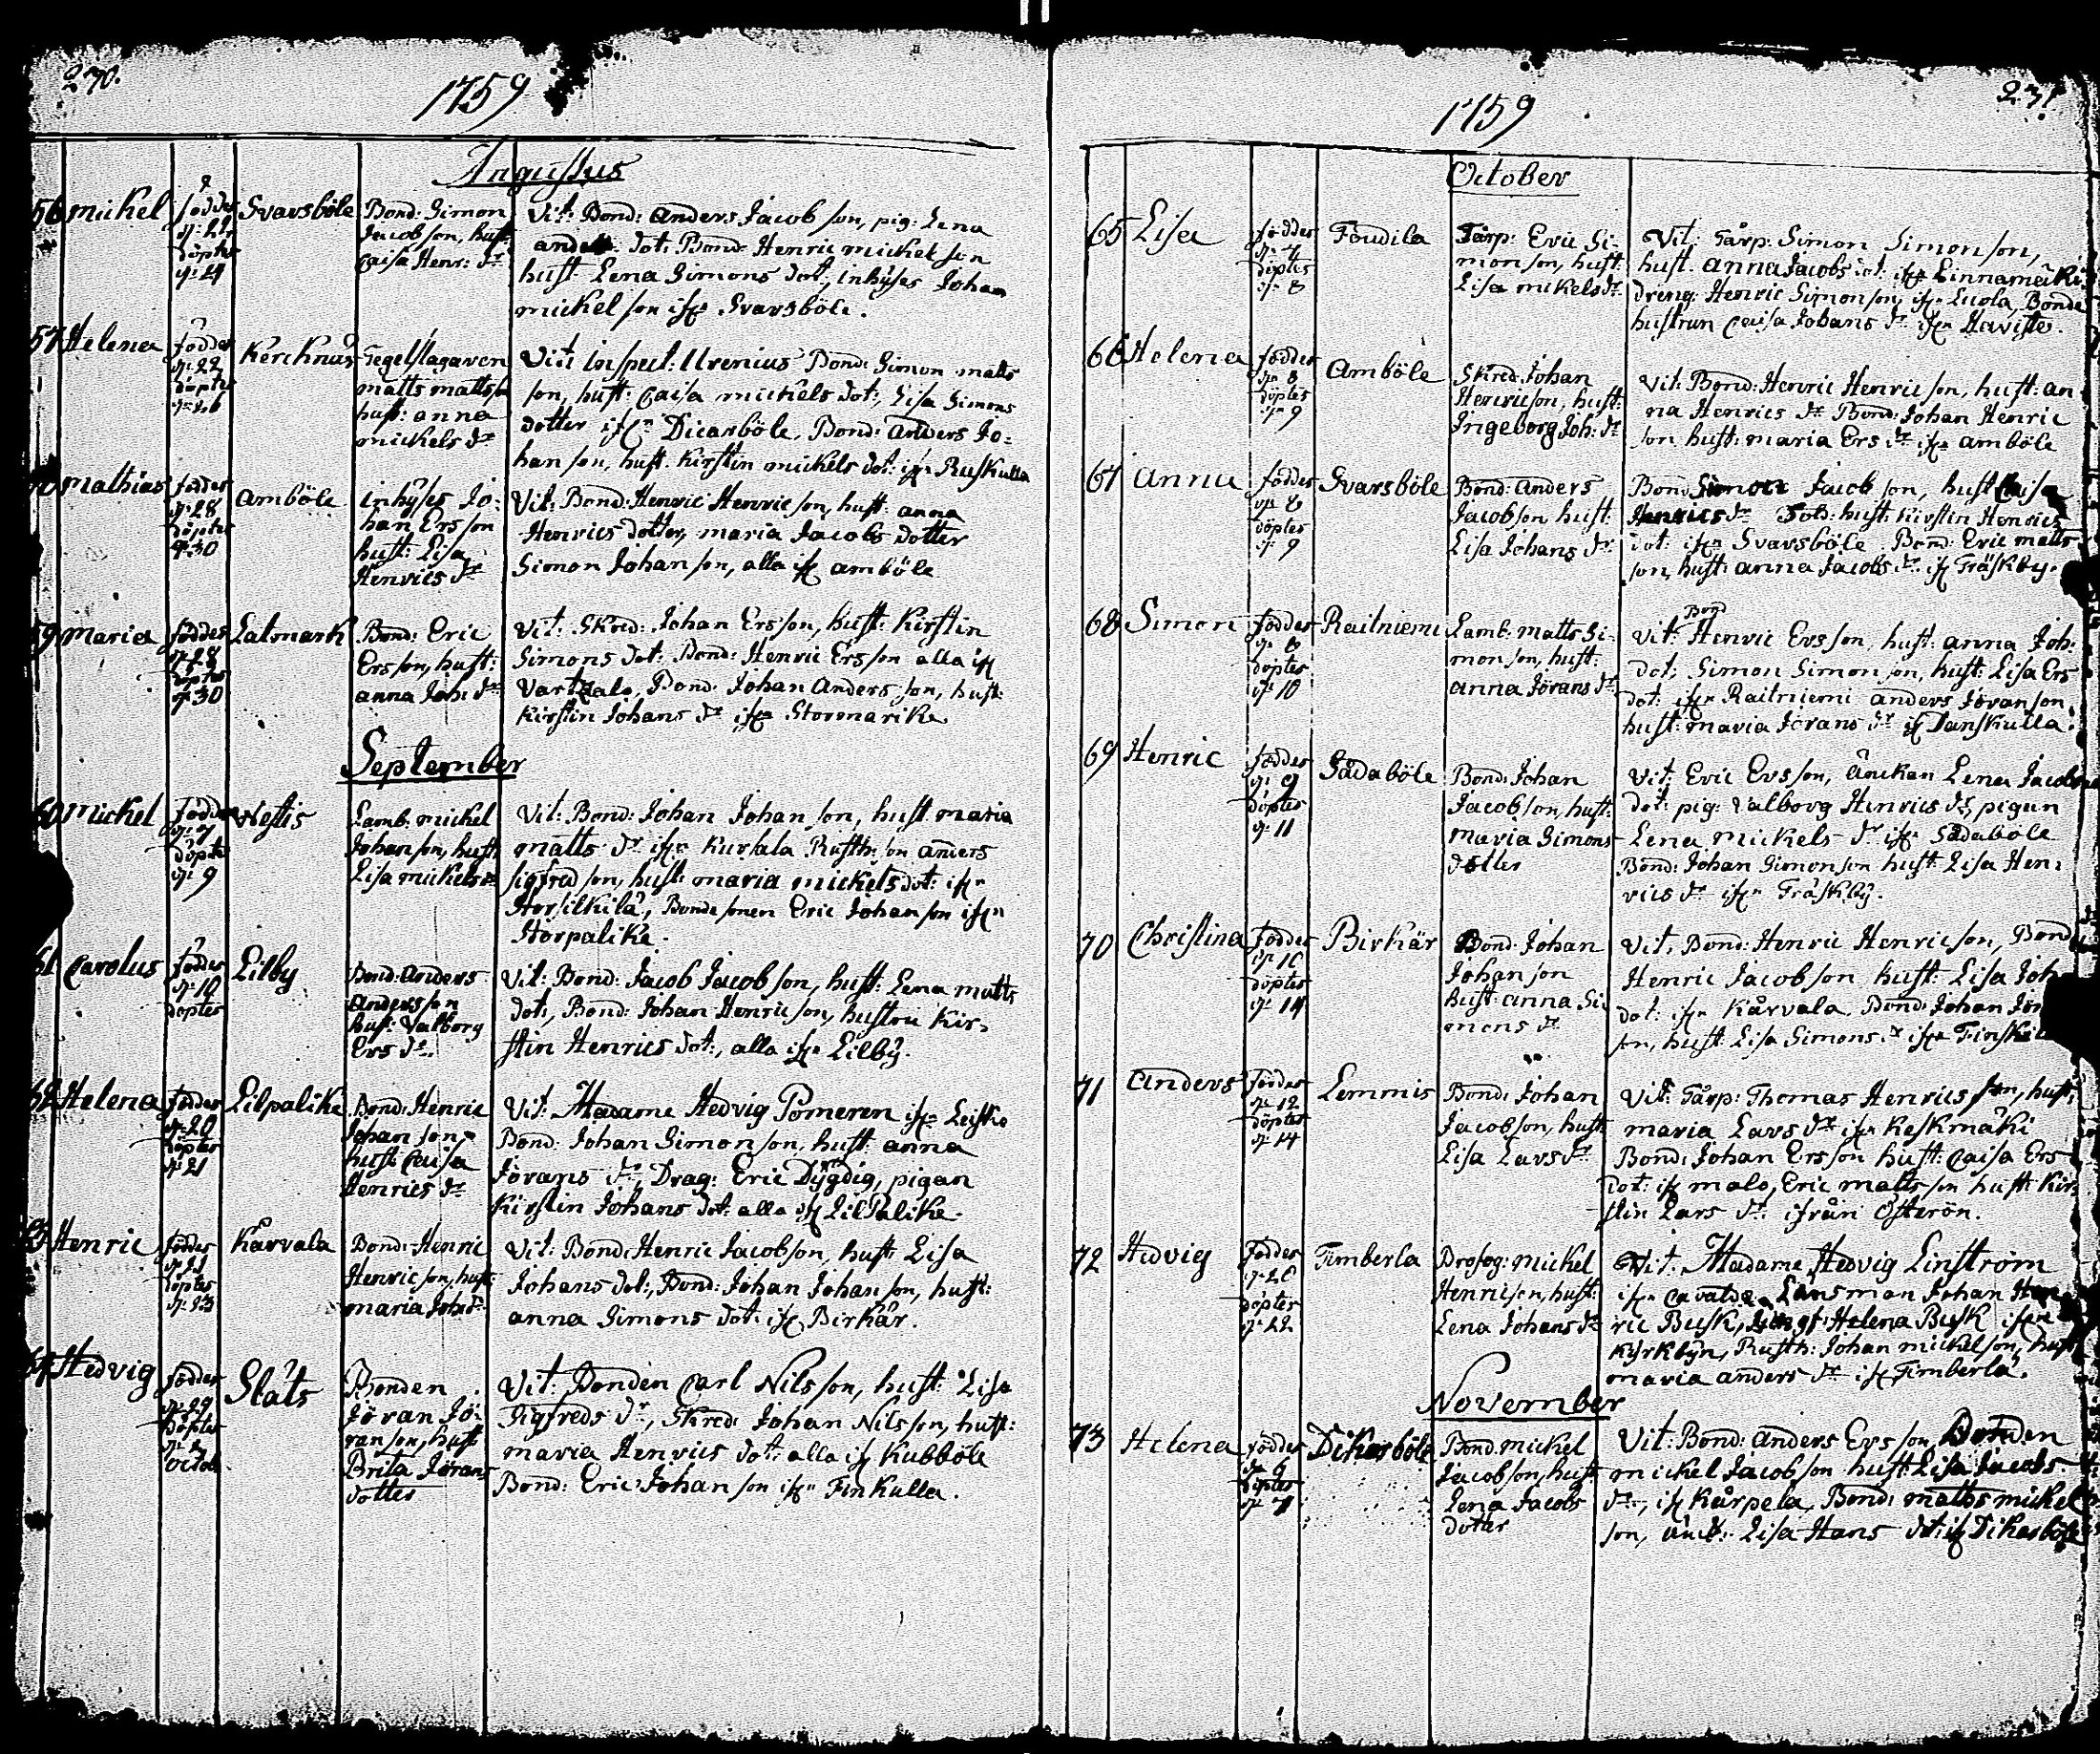 270.
1759
Augustus
56 Mickel
föddes
d: 21
döptes
d: 24
Svarsböle
Bond: Simon
Jacobson, hust:
Caisa Henr: dr
Vit: Bond: Anders Jacobson, pig: Lena
Anders dot: Bond: Henric Mickelson
hust: Lena Simons dot:, inhyses Johan
Mickelson ifrn Svarsböle.
57 Helena
föddes
d: 22
döptes
d: 26
Kercknäs
Tegelslagaren
Matts Mattsson
hust: Anna
Mickels dr
Vit: Inspect: Urenius Bond: Simon Matts
son, hust: Caisa Mickels dot:, Lisa Simons
dotter ifrn Dicarböle, Bond: Anders Jo:
hanson, hust: Kirstin Mickels dot: ifrn Ruskulla
Mathias
föddes
d: 28
döptes
d: 30
Amböle
inhyses Jo:
han Ersson
hust: Lisa
Henrics dr
Vit: Bond: Henric Henricson, hust: Anna
Henrics dotter, Maria Jacobs dotter
Simon Johanson, alla ifr Amböle
59 Maria
föddes
d: 28
döptes
d: 30
Latmark
Bond: Eric
Ersson, hust:
Anna Joh: dr
Vit: Skred: Johan Ersson, hust: Kirstin
Simons dot: Bond: Henric Ersson alla ifr
Vartsala, Bond: Johan Andersson, hust:
Kirstin Johans dr ifrn Stormarke
September
60 Mickel
föddes
d: 7
döptes
d: 9
Westis
Lamb: Mickel
Johanson, hust:
Lisa Mickels dr
Vit: Bond: Johan Johanson, hust Maria
Matts dr ifrn Kursala Rusth: son Anders
Sigfredson, hust: Maria Mickels dot: ifrn
Horsilkilä, Bondesonen Eric Johanson ifrn
Storpalike.
61 Carolus
föddes
d: 10
döptes
Lilby
Bond: Anders
Andersson
hust: Valborg
Ers dr.
Vit: Bond: Jacob Jacobson, hust: Lena Matts
dot:, Bond: Johan Henricson, hustru Kir:
stin Henrics dot:, alla ifr Lilby.
62 Helena
föddes
d: 20
döptes
d: 21
Lilpalike
Bond: Henric
Johanson
hust: Caisa
Henrics dr
Vit: Madame Hedvig Pomeren ifrn Leistis
Bond: Johan Simonson, hust: Anna
Jörans dr, Drag: Eric Dygdig, pigan
Kirstin Johans dot: alla ifr LilPalike.
63 Henric
föddes
d: 21
döptes
d: 23
Kårvala
Bond: Henric
Henricson, hust:
Maria Joh: dr
Vit: Bond: Henric Jacobson, hust Lisa
Johans dot:, Bond: Johan Johanson, hust:
Anna Simons dot: ifr Birkär.
64 Hedvig
föddes
d: 29
döptes
d:
Octob
Slåts
Bonden
Jöran Jö:
ranson, hust
Brita Jörans
dotter
Vit: Bonden Carl Nilsson, hust: Lisa
Sigfreds dr, Skred: Johan Nilsson, hust:
Maria Henrics dot: alla ifr Kubböle
Bond: Eric Johanson ifrn Finkulla.
231
1759
October
65 Lisa
föddes
d: 4
döptes
d: 8
Foudila
Tårp: Eric Si:
monson, hust:
Lisa Mickels dr
Vit: Tårp: Simon Simonson,
hust: Anna Jacobs dot: ifrn
dreng: Henric Simonson, ifrn Luola, Bonde
hustrun Caisa Johans dr ifrn Haviste.
66 Helena
föddes
d: 8
döptes
d: 9
Amböle
Skred: Johan
Henricson, hust:
Ingeborg Joh: dr
Vit: Bond: Henric Henricson, hust: An
na Henrics dr Bond: Johan Henric
son hust: Maria Ers dr ifrn Amböle
67 Anna
föddes
d: 8
döptes
d: 9
Svarsböle
Bond: Anders
Jacobson hust:
Lisa Johans dr
Bond: Simon Jacobson, hust Caisa
Henrics dr Sold: hust: Kirstin Henrics
dot: ifrn Svarsböle Bond: Eric Matts
son, hust: Anna Jacobs dr ifr Träskby.
68 Simon
föddes
d: 8
döptes
d: 10
Raitniemi
Lamb: Matts Si:
monson, hust:
Anna Jörans dr
Bond
Vit: Henric Ersson, hust: Anna Joh:
dot, Simon Simonson, hust: Lisa Ers
dot: ifrn Raitniemi Anders Jöranson,
hust: Maria Jörans dr ifr Danskulla.
69 Henric
föddes
d: 9
döptes
d: 11
Sådaböle
Bond: Johan
Jacobson, hust:
Maria Simons
dotter
Vit: Eric Ersson, Änckan Lena Jacobs
dot: pig: Valborg Henrics dr, pigan
Lena Mickels dr ifrn Sådaböle
Bond: Johan Simonson hust: Lisa Hen:
rics dr ifrn Träskby.
70 Christina
föddes
d: 10
döptes
d: 14
Birkär
Bond: Johan
Johanson
hust: Anna Si:
mons dr
Vit: Bond: Henric Henricson, Bond
Henric Jacobson hust: Lisa Joh
dot: ifrn Kårvala, Bond: Johan Jör
son, hust: Lisa Simons dr ifrn
71 Anders
föddes
d: 12
döptes
d: 14
Lemmis
Bond: Johan
Jacobson, hust:
Lisa Lars dr
Vit: Tårp: Thomas Henricsson, hust:
Maria Lars dr ifrn Keskmäki
Bond: Johan Ersson hust: Caisa Ers
dot: ifr Malo, Eric Mattsson hust: Kir:
stin Lars dr ifrån Österön.
72 Hedvig
föddes
d: 20
döptes
d: 22
Timberla
Profog: Mickel
Henricson, hust:
Lena Johans dr
Vit: Madame Hedvig Linström
ifrn Länsman Johan Hen
ric Busk, Jungf: Helena Busk ifrn
Kyrkbyn, Rusth: Johan Mickelson, hust
Maria Anders dr ifr Timberla.
November
73 Helena
föddes
d: 6
döptes
d: 7
Dikarböle
Bond: Mickel
Jacobson, hust
Lena Jacobs
dotter
Vit: Bond: Anders Ersson, Bonden
Mickel Jacobson hust: Lisa Jacobs
dr, ifr Kårpela, Bond: Matts Mickel
son, Änck: Lisa Hans dot: ifr Dikarböle